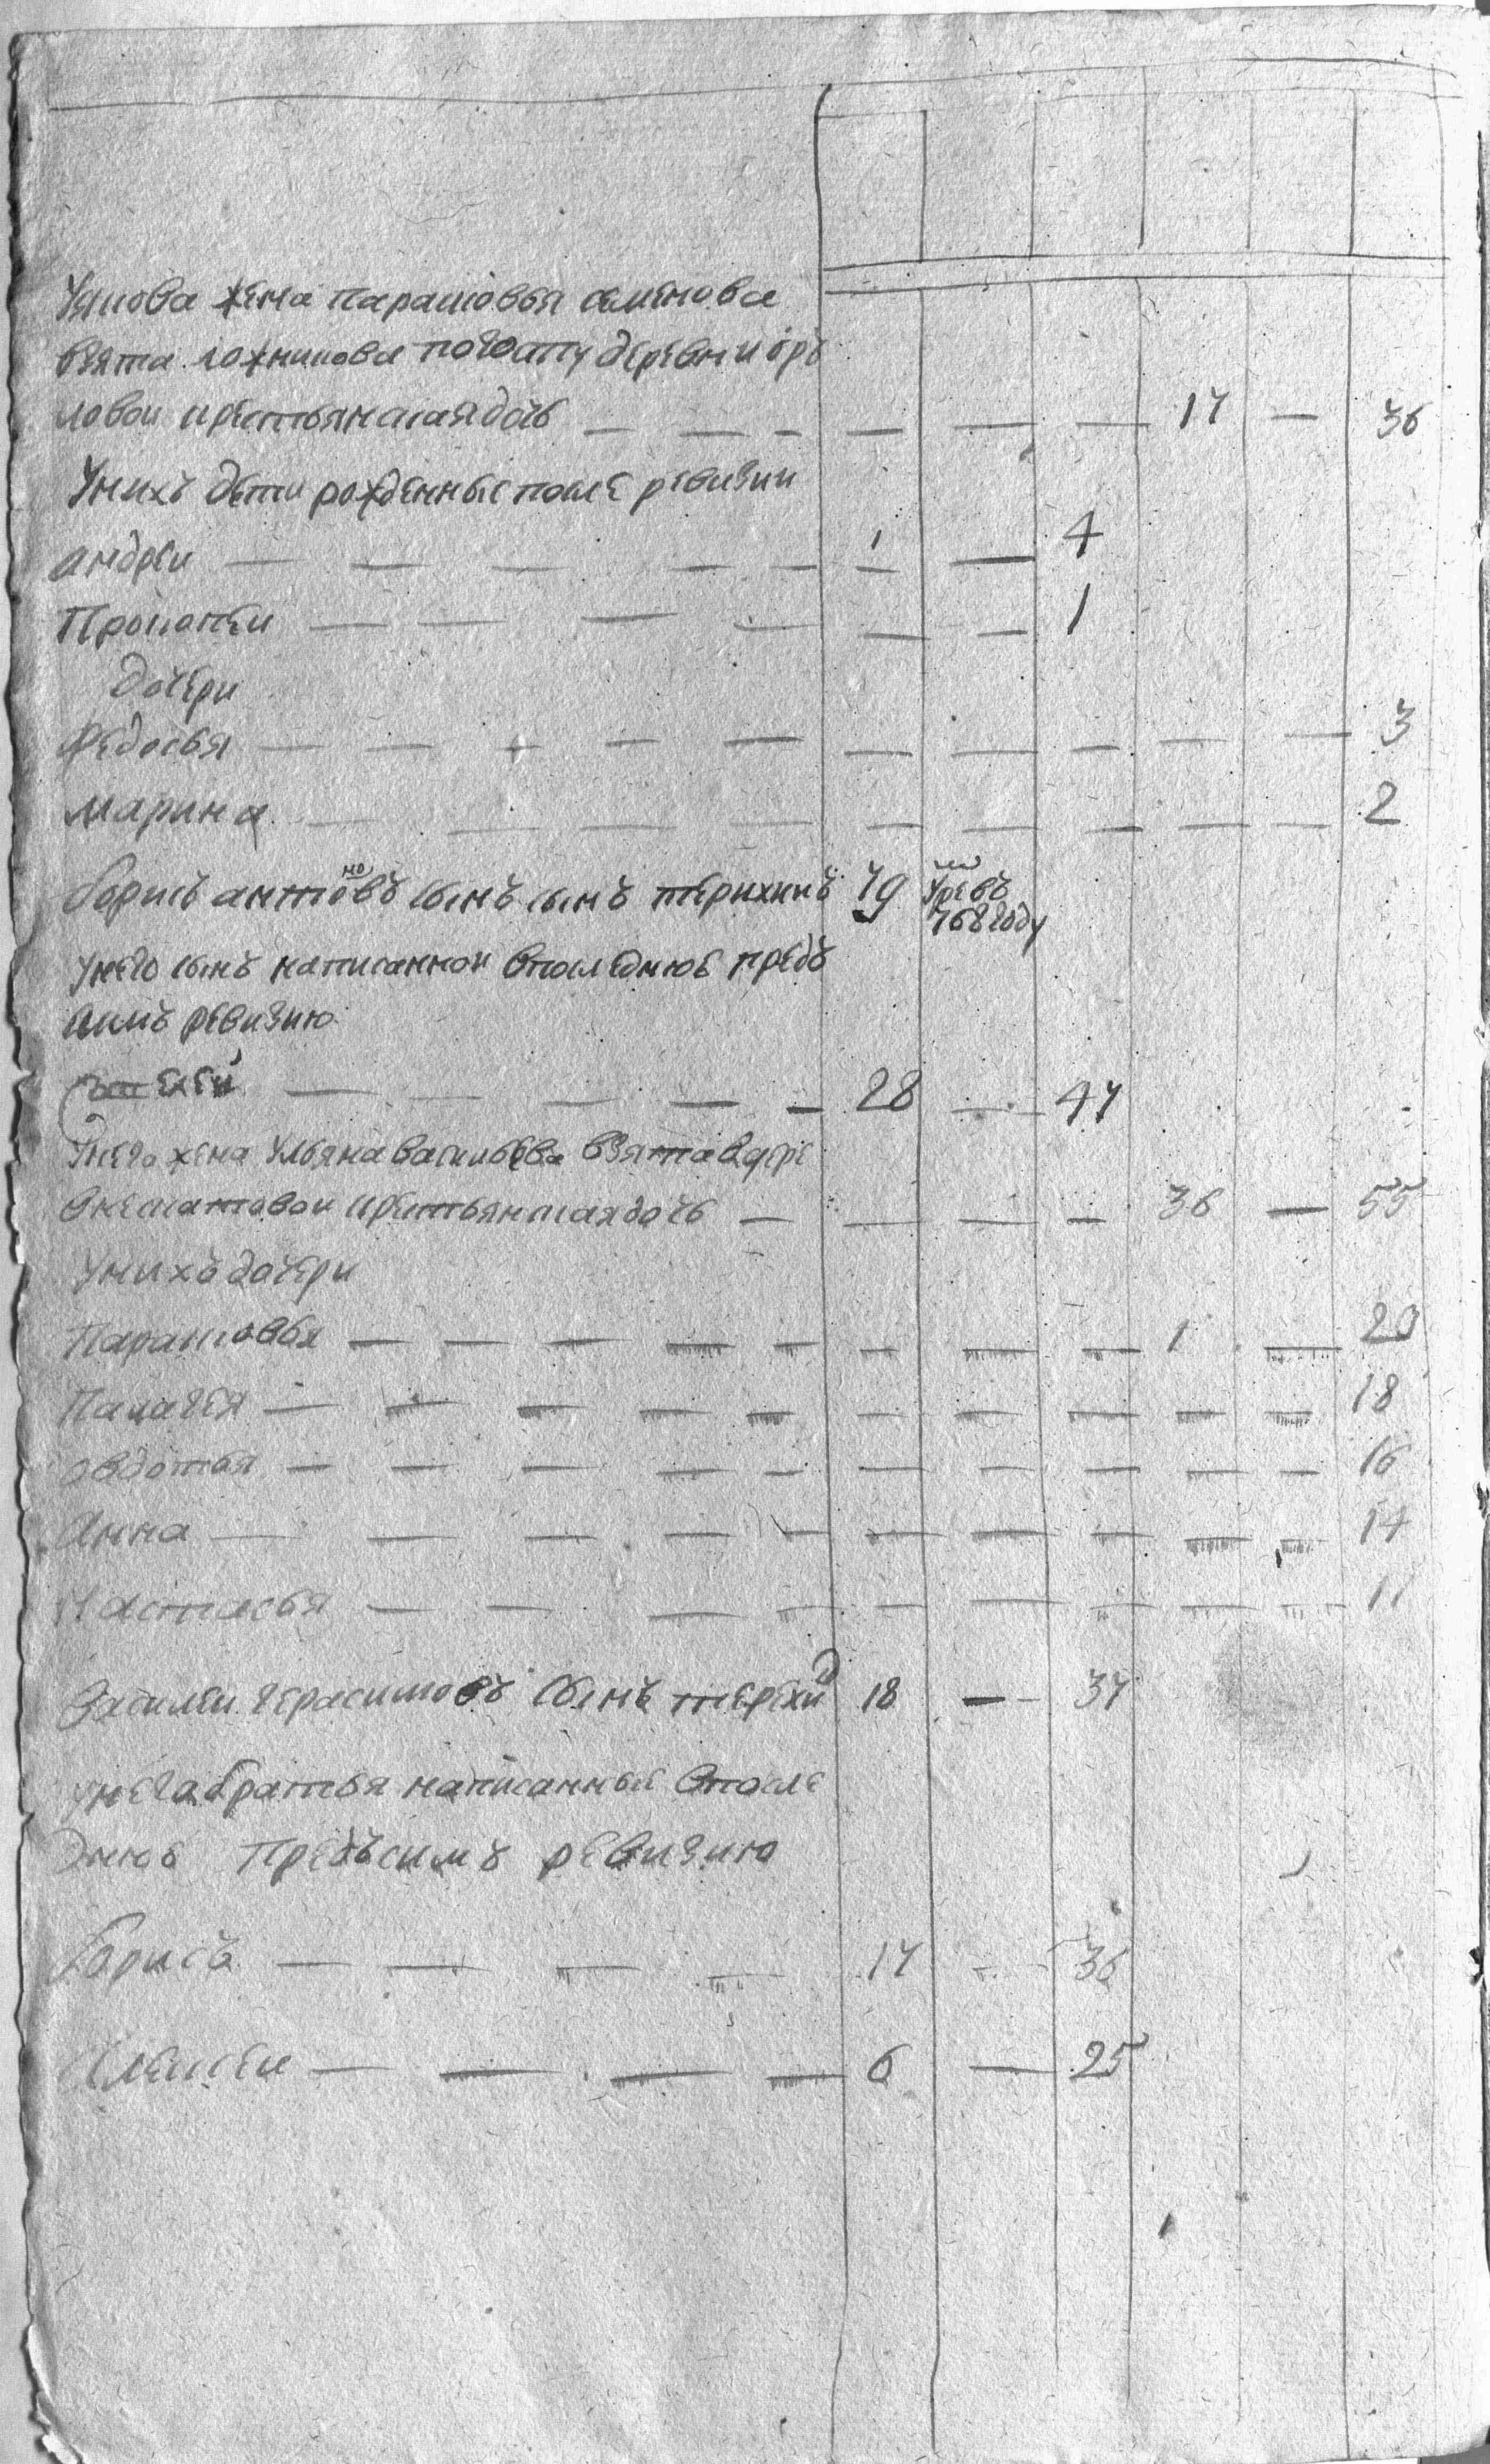 Уякова жена параковья семенова
взята локнинова погосту деревни ор
ловои крестьянская дочь — — — — — — 17 — 36
Унихъ дети рожденные после ревизии
андреи — — — — — 1 — 4
Прокофеи — — — — — — 1
дочери
Федосья — — — — — — — — — — 3
марина — — — — — — — — — — 2
борисъ антоновъ сынъ сынъ терихинъ 79 умре въ 768 году
унего сынъ написаннои впоследнюе предъ
симъ ревизию
— — — — — 28 — 47
Унего жена Ульяна васильева взята в дере
крестьянская дочь — — — — 36 — 55
Унихъ дочери
Параковья — — — — — — — — 1 — 20
Палагея — — — — — — — — — — 18
овдотья — — — — — — — — — — 16
Анна — — — — — — — — — — 14
Настасья — — — — — — — — — 11
Василеи герасимовъ сынъ терехин 18 — 37
унего братья написанные впосле
днюе предъ симъ ревизию
Борисъ — — — — 17 — 36
Алексеи — — — — 6 — 25